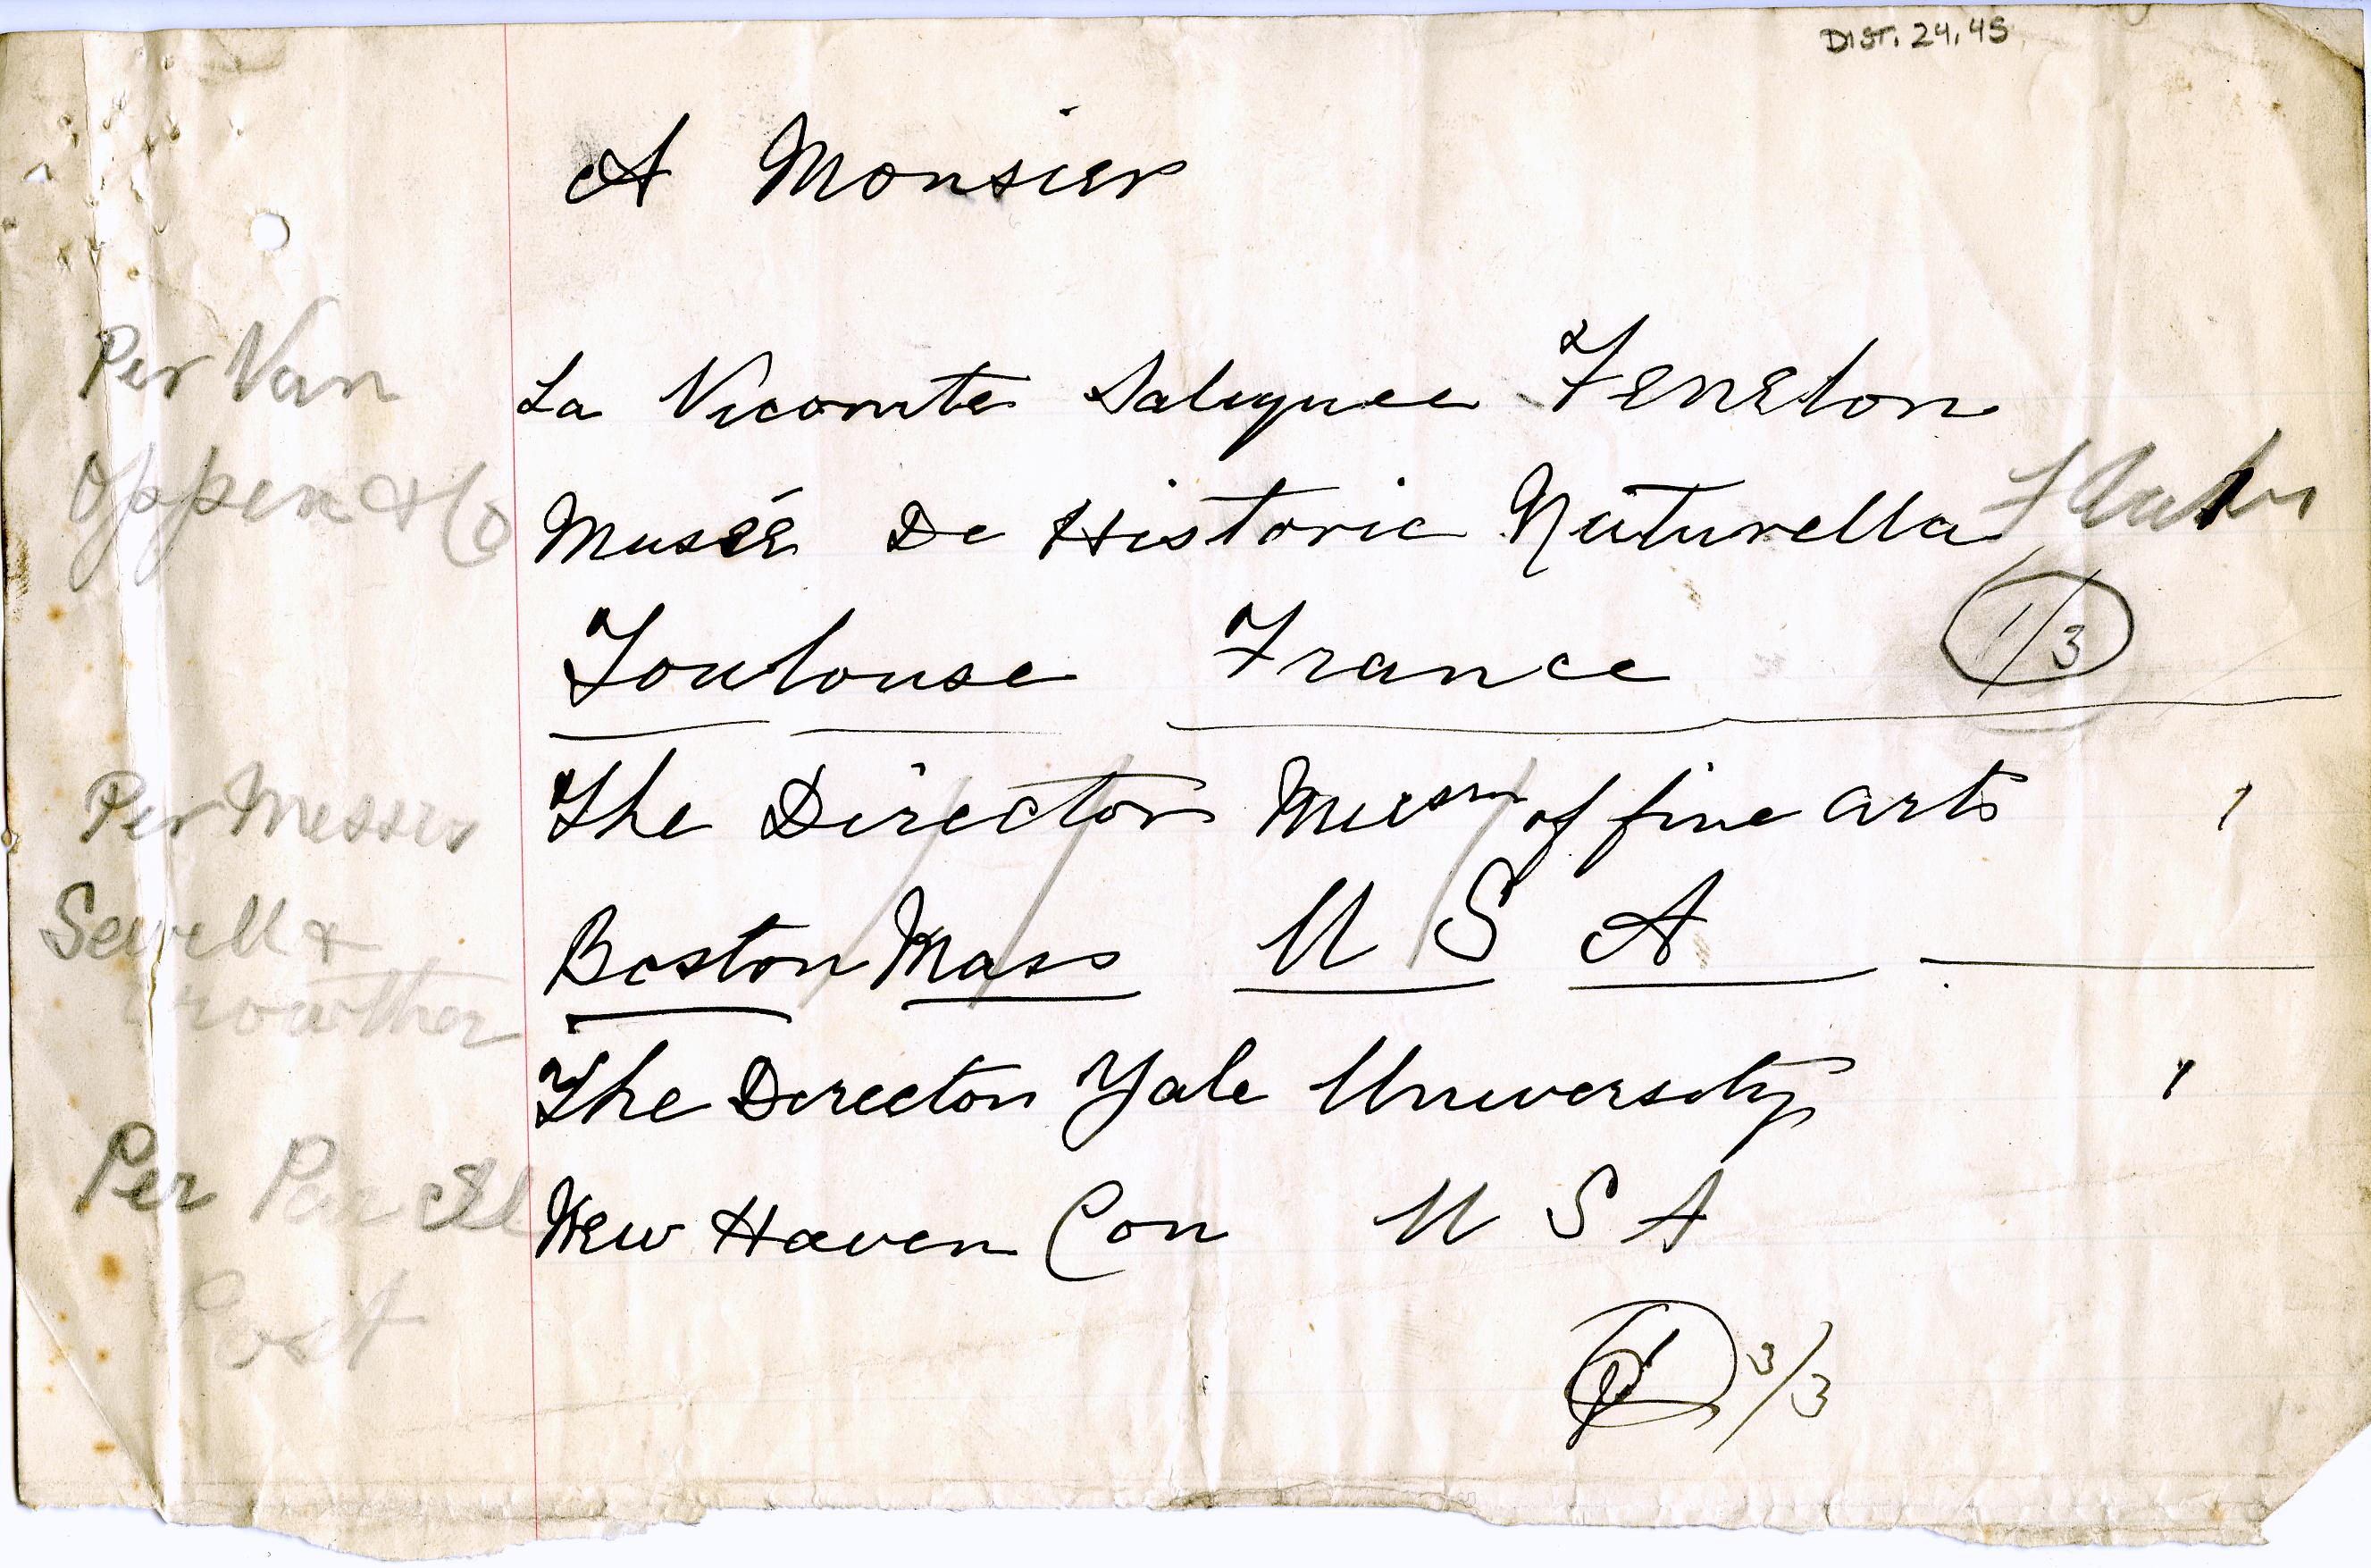 DIST. 24.45
A Monsier
Per Van
Oppen & Co
La Vicomte Salignee Fenelon
Museé De Historie Naturella
Toulouse France
1/3
Per Messrs
Sewell &
Crowther
The Director Museum of fine arts 1
Boston Mass U S A
The Director Yale University 1
Per Parcel
Post
New Haven Con U S A
3/3